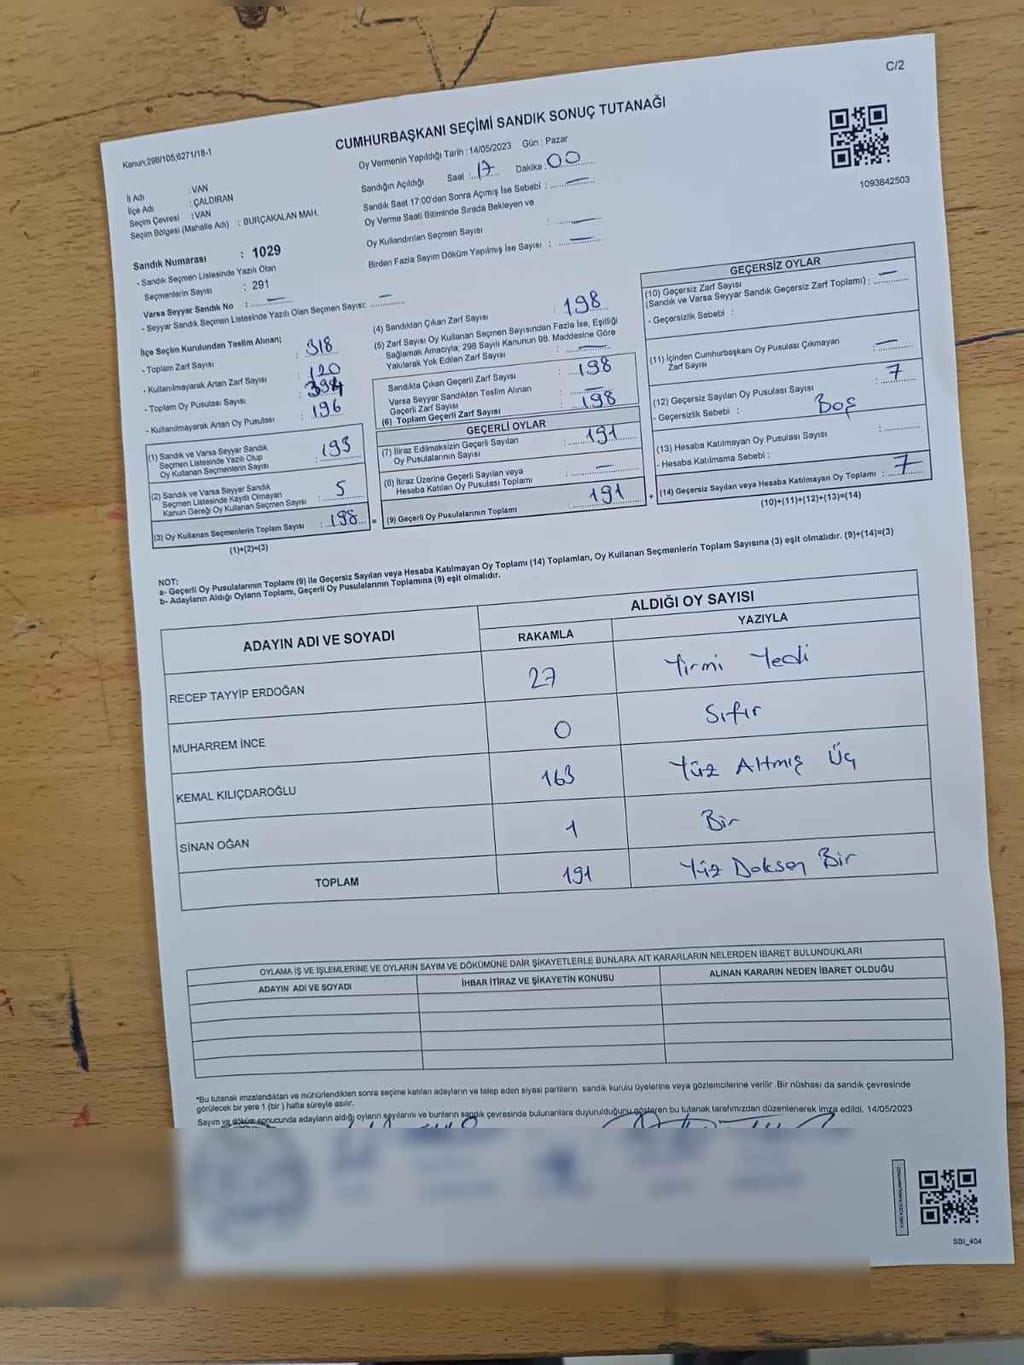 C/2
CUMHURBAŞKANI SEÇİMİ SANDIK SONUÇ TUTANAĞI
Kanun;298/105;6271/18-1
Oy Vermenin Yapıldığı Tarih : 14/05/2023 Gün : Pazar
1093842503
İl Adı : VAN
İlçe Adı : ÇALDIRAN
Seçim Çevresi : VAN
Seçim Bölgesi (Mahalle Adı) : BURÇAKALAN MAH.
Sandık Numarası : 1029
- Sandık Seçmen Listesinde Yazılı Olan
Seçmenlerin Sayısı : 291
Varsa Seyyar Sandık No : —
- Seyyar Sandık Seçmen Listesinde Yazılı Olan Seçmen Sayısı: —
Sandığın Açıldığı Saat : 17 Dakika : 00
Sandık Saat 17:00'den Sonra Açımış İse Sebebi : —
Oy Verme Saati Bitiminde Sırada Bekleyen ve
Oy Kullandırılan Seçmen Sayısı : —
Birden Fazla Sayım Döküm Yapılmış İse Sayısı : —
İlçe Seçim Kurulundan Teslim Alınan;
- Toplam Zarf Sayısı : 318
- Kullanılmayarak Artan Zarf Sayısı : 120
- Toplam Oy Pusulası Sayısı : 394
- Kullanılmayarak Artan Oy Pusulası : 196
(1) Sandık ve Varsa Seyyar Sandık
Seçmen Listesinde Yazılı Olup
Oy Kullanan Seçmenlerin Sayısı : 193
(2) Sandık ve Varsa Seyyar Sandık
Seçmen Listesinde Kayıtlı Olmayan
Kanun Gereği Oy Kullanan Seçmen Sayısı : 5
(3) Oy Kullanan Seçmenlerin Toplam Sayısı : 198 =
(1)+(2)=(3)
(4) Sandıktan Çıkan Zarf Sayısı : 198
(5) Zarf Sayısı Oy Kullanan Seçmen Sayısından Fazla İse, Eşitliği
Sağlamak Amacıyla; 298 Sayılı Kanunun 98. Maddesine Göre
Yakılarak Yok Edilen Zarf Sayısı : —
Sandıkta Çıkan Geçerli Zarf Sayısı : 198
Varsa Seyyar Sandıktan Teslim Alınan
Geçerli Zarf Sayısı : —
(6) Toplam Geçerli Zarf Sayısı : 198
GEÇERLİ OYLAR
(7) İtiraz Edilmeksizin Geçerli Sayılan
Oy Pusulalarının Sayısı : 191
(8) İtiraz Üzerine Geçerli Sayılan veya
Hesaba Katılan Oy Pusulası Toplamı : —
(9) Geçerli Oy Pusulalarının Toplamı : 191 +
GEÇERSİZ OYLAR
(10) Geçersiz Zarf Sayısı
(Sandık ve Varsa Seyyar Sandık Geçersiz Zarf Toplamı) : —
- Geçersizlik Sebebi :
(11) İçinden Cumhurbaşkanı Oy Pusulası Çıkmayan
Zarf Sayısı : —
(12) Geçersiz Sayılan Oy Pusulası Sayısı : 7
- Geçersizlik Sebebi : Boş
(13) Hesaba Katılmayan Oy Pusulası Sayısı :
- Hesaba Katılmama Sebebi :
(14) Geçersiz Sayılan veya Hesaba Katılmayan Oy Toplamı : 7
(10)+(11)+(12)+(13)=(14)
NOT:
a- Geçerli Oy Pusulalarının Toplamı (9) ile Geçersiz Sayılan veya Hesaba Katılmayan Oy Toplamı (14) Toplamları, Oy Kullanan Seçmenlerin Toplam Sayısına (3) eşit olmalıdır. (9)+(14)=(3)
b- Adayların Aldığı Oyların Toplamı, Geçerli Oy Pusulalarının Toplamına (9) eşit olmalıdır.
ADAYIN ADI VE SOYADI ALDIĞI OY SAYISI
RAKAMLA YAZIYLA
RECEP TAYYİP ERDOĞAN 27 Yirmi Yedi
MUHARREM İNCE 0 Sıfır
KEMAL KILIÇDAROĞLU 163 Yüz Altmış Üç
SİNAN OĞAN 1 Bir
TOPLAM 191 Yüz Doksan Bir
OYLAMA İŞ VE İŞLEMLERİNE VE OYLARIN SAYIM VE DÖKÜMÜNE DAİR ŞİKAYETLERLE BUNLARA AİT KARARLARIN NELERDEN İBARET BULUNDUKLARI
ADAYIN ADI VE SOYADI İHBAR İTİRAZ VE ŞİKAYETİN KONUSU ALINAN KARARIN NEDEN İBARET OLDUĞU
*Bu tutanak imzalandıktan ve mühürlendikten sonra seçime katılan adayların ve talep eden siyasi partilerin sandık kurulu üyelerine veya gözlemcilerine verilir. Bir nüshası da sandık çevresinde
görülecek bir yere 1 (bir) hafta süreyle asılır.
Sayım ve döküm sonucunda adayların aldığı oyların sayılarını ve bunların sandık çevresinde bulunanlara duyurulduğunu gösteren bu tutanak tarafımızdan düzenlenerek imza edildi. 14/05/2023
SBI_404